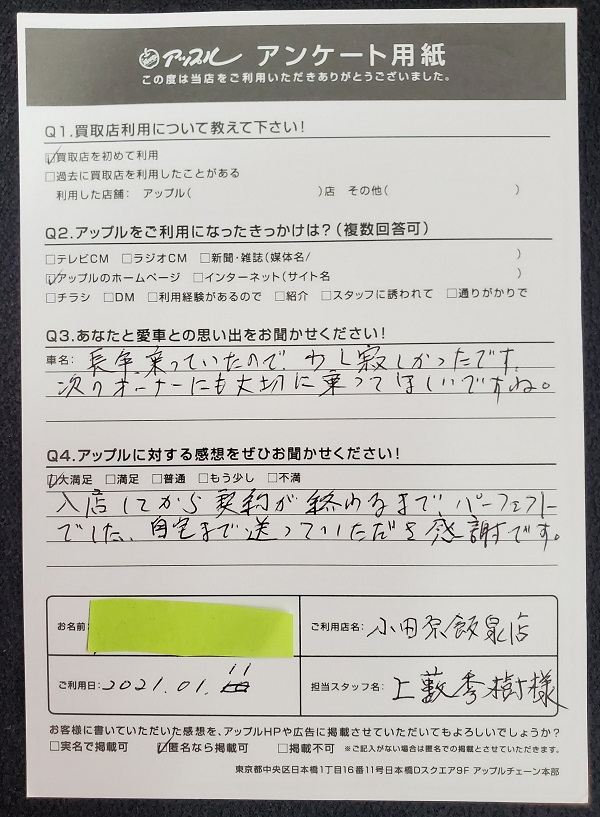 アップル アンケート用紙
この度は当店をご利用いただきありがとうございました。
Q1.買取店利用について教えて下さい!
☑買取店を初めて利用
□過去に買取店を利用したことがある
利用した店舗: アップル( )店 その他( )
Q2.アップルをご利用になったきっかけは?(複数回答可)
□テレビCM □ラジオCM □新聞・雑誌(媒体名/ )
☑アップルのホームページ □インターネット(サイト名 )
□チラシ □DM □利用経験があるので □紹介 □スタッフに誘われて □通りがかりで
Q3.あなたと愛車との思い出をお聞かせください!
車名: 長年乗っていたので、少し寂しかったです。
次のオーナーにも大切に乗ってほしいですね。
Q4.アップルに対する感想をぜひお聞かせください!
☑大満足 □満足 □普通 □もう少し □不満
入店してから契約が終わるまで、パーフェクト
でした、自宅まで送っていただき感謝です。
お名前:
ご利用店名: 小田原飯泉店
ご利用日: 2021.01.11
担当スタッフ名: 上藪秀樹様
お客様に書いていただいた感想を、アップルHPや広告に掲載させていただいてもよろしいでしょうか?
□実名で掲載可 ☑匿名なら掲載可 □掲載不可 ※ご記入がない場合は匿名での掲載とさせていただきます。
東京都中央区日本橋1丁目16番11号日本橋Dスクエア9F アップルチェーン本部